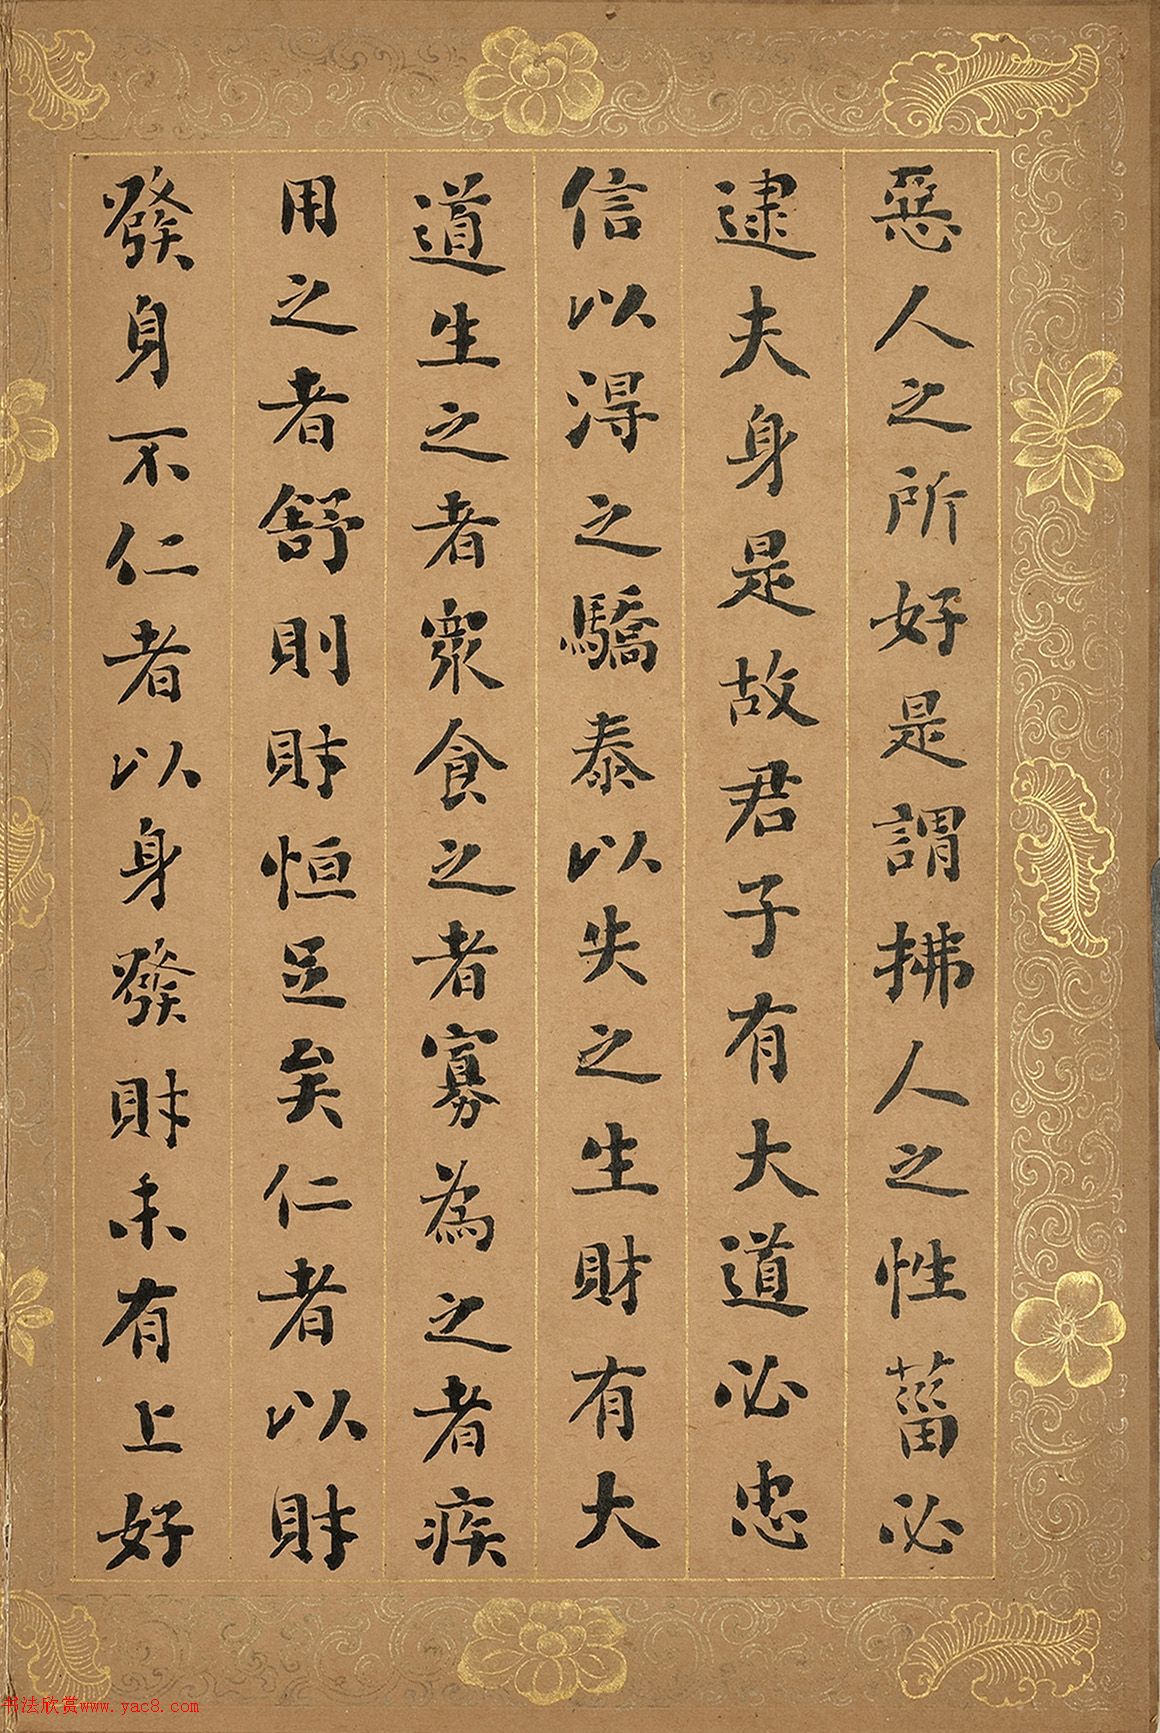 惡人之所好是謂拂人之性菑必
逮夫身是故君子有大道必忠
信以得之驕泰以失之生財有大
道生之者衆食之者寡為之者疾
用之者舒則財恒足矣仁者以財
發身不仁者以身發財未有上好
书法欣赏www.yac8.com